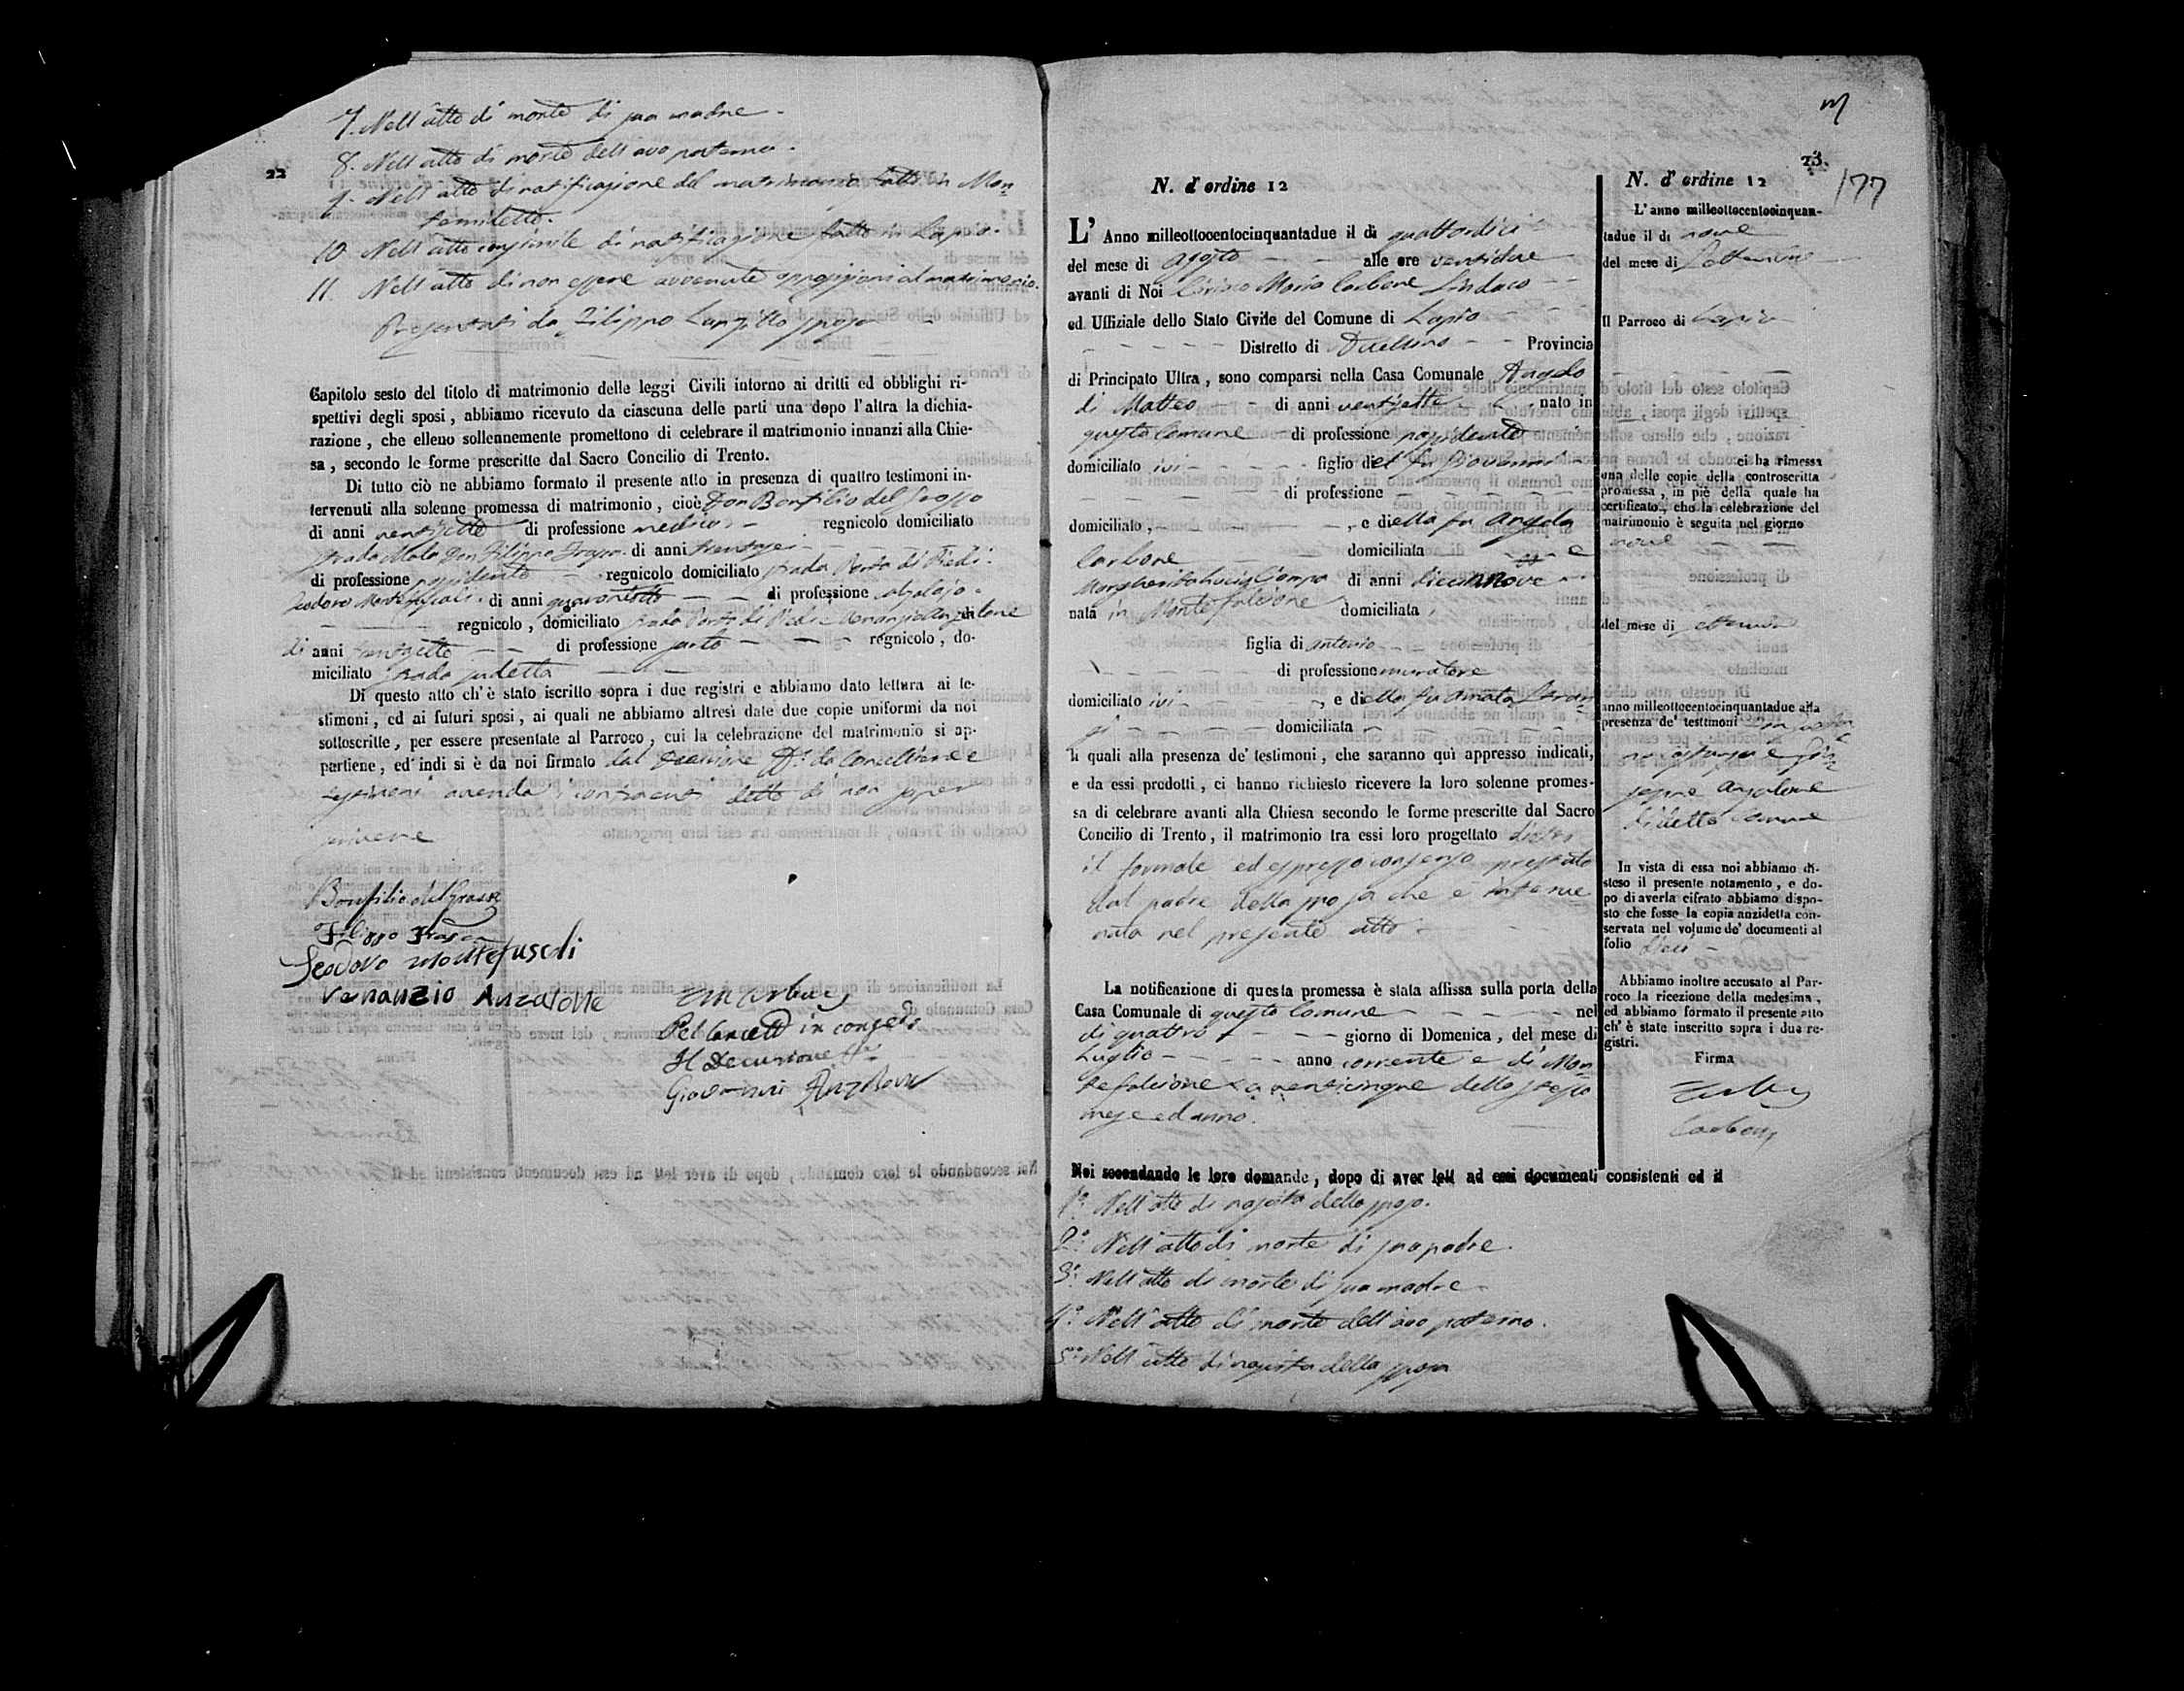 22
7. Nell'atto di morte di sua madre.
8. Nell'atto di morte dell'avo paterno.
9. Nell'atto di notificazione del matrimonio fatto in Mon=
10. Nell'atto consimile di notificazione fatto in Lapio.
11. Nell'atto di non essere avvenute opposizioni al matrimonio.
Presentati da Filippo sposo
Capitolo sesto del titolo di matrimonio delle leggi Civili intorno ai dritti ed obblighi ri-
spettivi degli sposi, abbiamo ricevuto da ciascuna delle parti una dopo l'altra la dichia-
razione, che elleno sollennemente promettono di celebrare il matrimonio innanzi alla Chie-
sa, secondo le forme prescritte dal Sacro Concilio di Trento.
Di tutto ciò ne abbiamo formato il presente atto in presenza di quattro testimoni in-
tervenuti alla solenne promessa di matrimonio, cioè Don Bonfilio del Grosso
di anni ventisette di professione medico regnicolo domiciliato
strada Don Filippo di anni trentasei
di professione possidente regnicolo domiciliato strada Porta di Piedi.
Teodoro Montefuscoli. di anni quarantotto di professione
regnicolo, domiciliato strada Porta di Piedi e Venanzio Anzalone
di anni di professione sarto regnicolo, do-
miciliato strada sudetta
Di questo atto ch'è stato iscritto sopra i due registri e abbiamo dato lettura ai te-
stimoni, ed ai futuri sposi, ai quali ne abbiamo altresì date due copie uniformi da noi
sottoscritte, per essere presentate al Parroco, cui la celebrazione del matrimonio si ap-
partiene, ed indi si è da noi firmato dal Decurione da Cancelliere e
testimoni avendo i contraenti detto di non saper
scrivere
Bonfilio del Grosso
Filippo
Teodoro Montefuscoli
Venanzio Anzalone
Pel Cancell in congedo
Il Decurione
Giovanni Anzalone
23.
177
N. d'ordine 12
L'Anno milleottocentocinquantadue il dì quattordici
del mese di Agosto alle ore ventidue
avanti di Noi Ciriaco Maria Carbone Sindaco
ed Uffiziale dello Stato Civile del Comune di Lapio
Distretto di Avellino Provincia
di Principato Ultra, sono comparsi nella Casa Comunale Angelo
di Matteo di anni ventisette nato in
questo Comune di professione possidente
domiciliato ivi figlio del fu Giovanni
di professione
domiciliato, e di ella fu Angela
Carbone domiciliata e
Margherita di anni diecinnove
nata in Montefalcione domiciliata
figlia di Antonio
di professione muratore
domiciliato ivi, e di ella fu Amata
domiciliata
li quali alla presenza de' testimoni, che saranno quì appresso indicati,
e da essi prodotti, ci hanno richiesto ricevere la loro solenne promes-
sa di celebrare avanti alla Chiesa secondo le forme prescritte dal Sacro
Concilio di Trento, il matrimonio tra essi loro progettato dietro
il formale ed espresso consenso prestato
dal padre della sposa che è interve
nuto nel presente atto.
La notificazione di questa promessa è stata affissa sulla porta della
Casa Comunale di questo Comune nel
di quattro giorno di Domenica, del mese di
Luglio anno corrente e di Mon=
tefalcione a venticinque dello stesso
mese ed anno.
Noi secondando le loro domande, dopo di aver lett ad essi documenti consistenti ed il
1° Nell'atto di nascita dello sposo.
2° Nell'atto di morte di suo padre.
3° Nell'atto di morte di sua madre
4° Nell'atto di morte dell'avo paterno.
5° Nell'atto di nascita della sposa
N. d'ordine 12
L'anno milleottocentocinquan-
tadue il di nove
del mese di Settembre
Il Parroco di Lapio
ci ha rimessa
una delle copie della controscritta
promessa, in piè della quale ha
certificato, che la celebrazione del
matrimonio è seguita nel giorno
nove
del mese di settembre
anno milleottocentocinquantadue alla
presenza de' testimoni
seppe Anzalone
di detto Comune
In vista di essa noi abbiamo di-
steso il presente notamento, e do-
po di averla cifrato abbiamo dispo-
sto che fosse la copia anzidetta con-
servata nel volume de' documenti al
folio
Abbiamo inoltre accusato al Par-
roco la ricezione della medesima,
ed abbiamo formato il presente atto
ch'è stato inscritto sopra i due re-
gistri.
Firma
Carbone